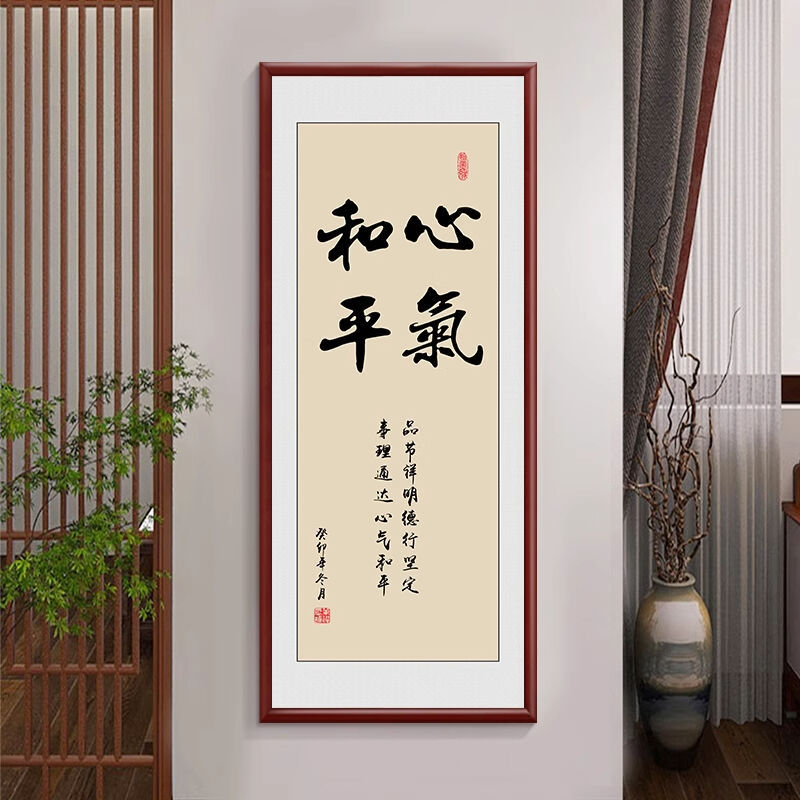 心氣
和平
品节详明德行坚定
事理通达心气和平
癸卯年冬月